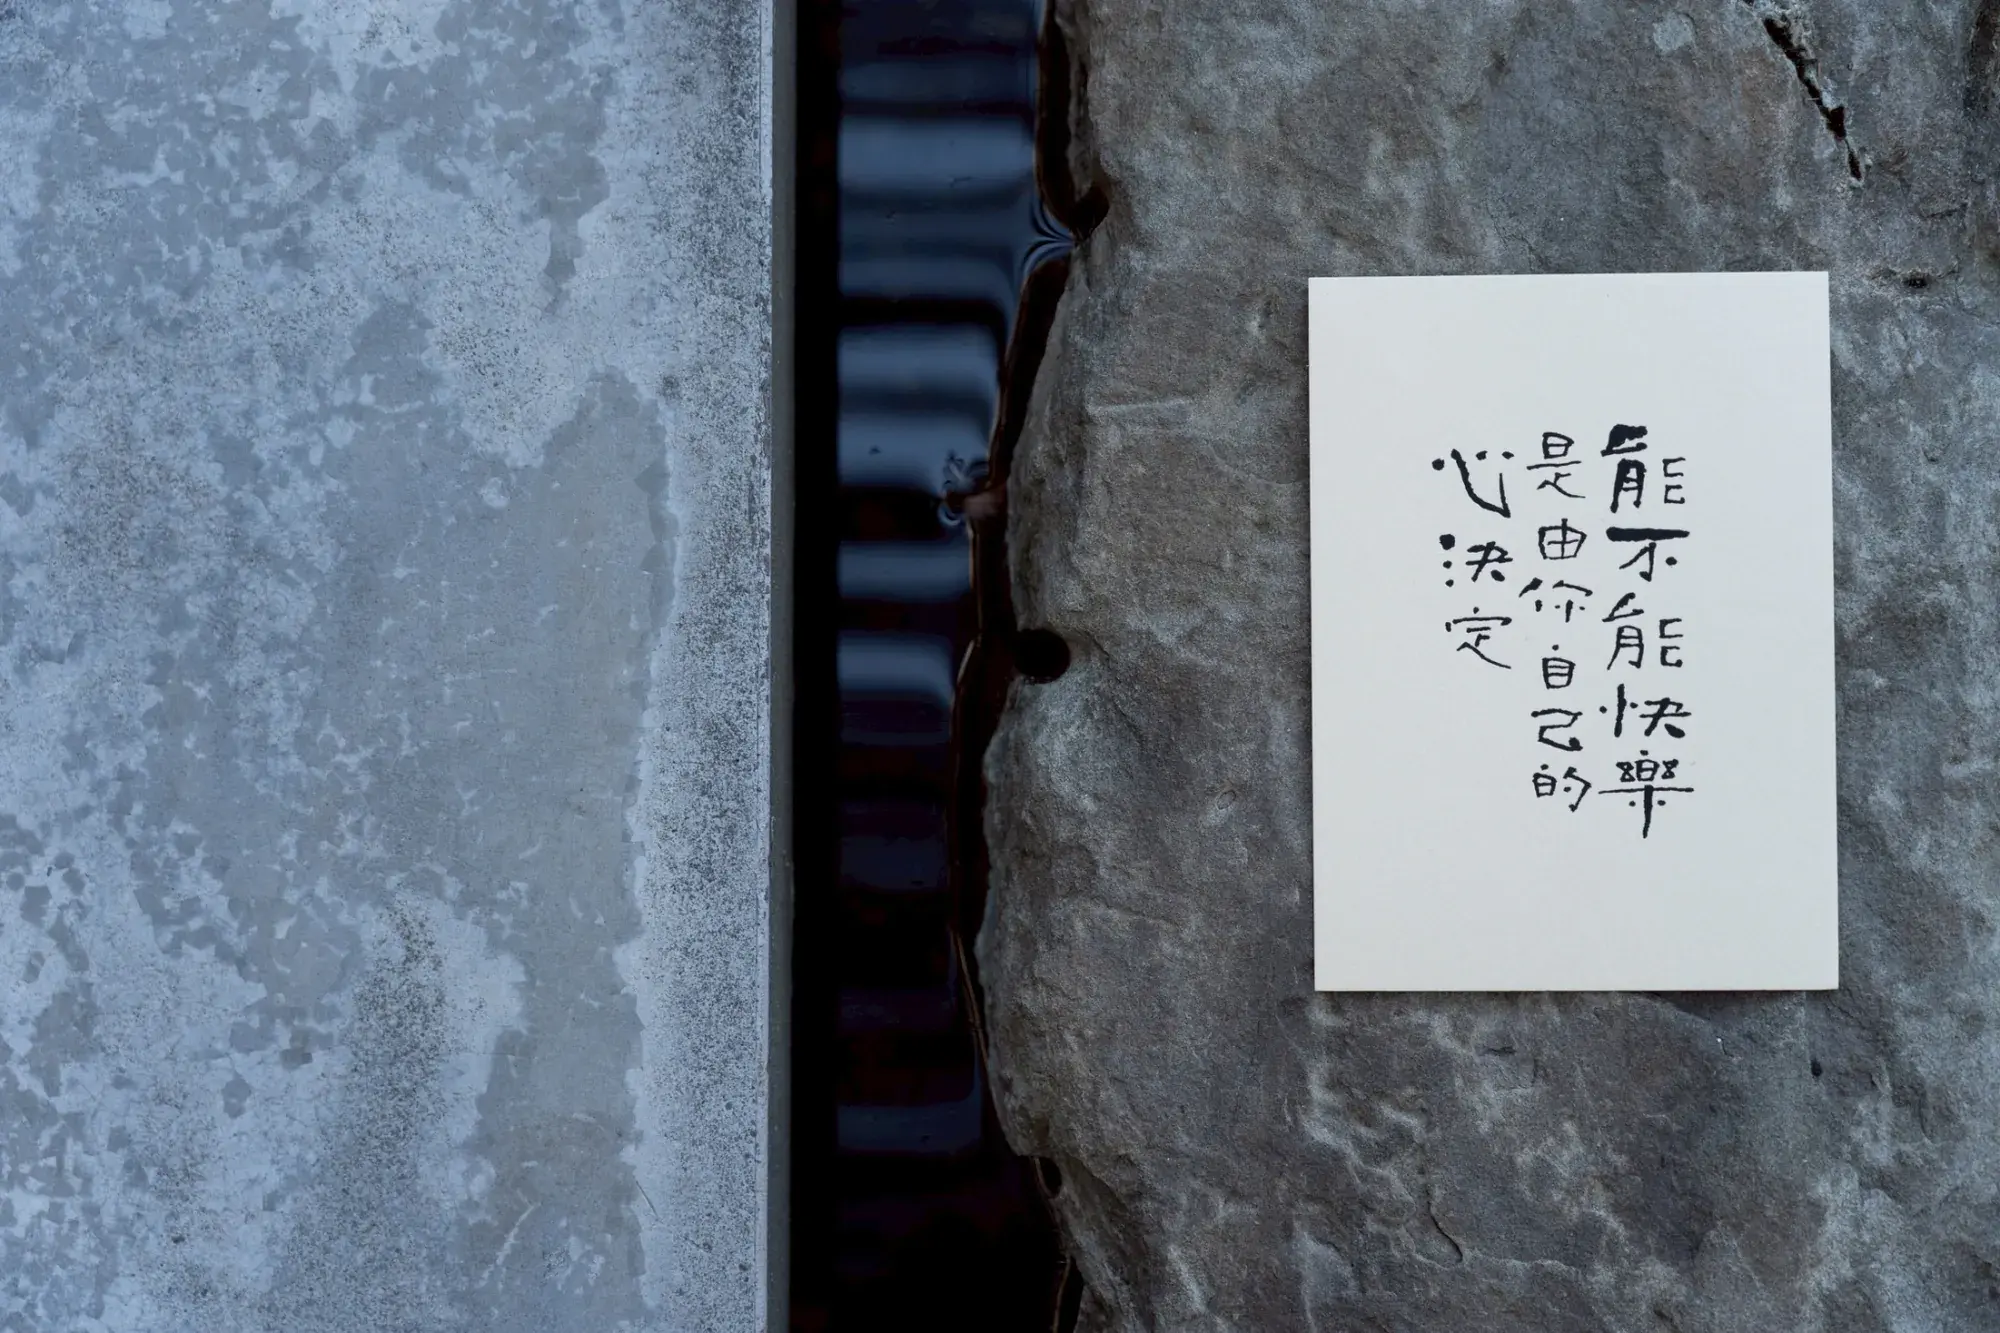 能不能快樂
是由你自己的
心決定